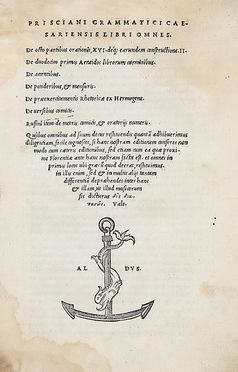 PRISCIANI GRAMMATICI CAE-
SARIENSIS LIBRI OMNES.
De octo partibus orationis, XVI. deq; earundem constructione. II.
De duodecim primis Aeneidos librorum carminibus.
De accentibus.
De ponderibus, & mensuris.
De praeexercitamentis Rhetoricæ ex Hermogene.
De uersibus comicis.
Rufini item de metris comicis, & oratorijs numeris.
Quibus omnibus ad suum decus restituendis quantã adhibuerimus
diligentiam, facile cognoscet, si hanc nostram editionem conferes non
modo cum cæteris editionibus, sed etiam cum ea quæ proxi-
me Florentiæ ante hanc nostram facta est. et omnes in
primis locos ubi græcũ quid deerat, restituimus.
in illis enim, sed & in multis alijs tantam
differentiã deprehendes inter hanc
& illam, ut illud musicorum
sit dicturus δὶς διὰ
πασῶν. Vale.
AL DVS.